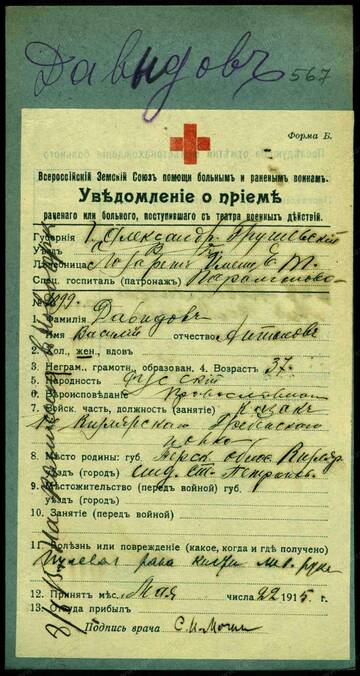 Давыдовъ 567
Форма Б.
Всероссійскій Земскій Союзъ помощи больнымъ и раненымъ воинамъ.
Увѣдомленіе о пріемѣ
раненаго или больного, поступившаго съ театра военныхъ дѣйствій.
Губернія Г. Александр. Грушевскій
Уѣздъ
Лечебница Лазаретъ Имени Е. Т.
Спец. госпиталь (патронажъ) Парамонова
№ 2999.
1. Фамилія Давидовъ
Имя Василій отчество Антоновъ
2. Хол., жен., вдовъ
3. Неграм., грамотн., образован. 4. Возрастъ 37.
5. Народность русскій
6. Вѣроисповѣданіе Православный
7. Войск. часть, должность (занятіе) казакъ
Кизлярскаго Гребенского
полка
8. Мѣсто родины: губ. Терск. област. Кизляр.
уѣздъ (городъ) ст.
9. Мѣстожительство (передъ войной) губ.
уѣздъ (городъ)
10. Занятіе (передъ войной)
11. Болѣзнь или поврежденіе (какое, когда и гдѣ получено)
Пулевая рана кисти лѣв. руки
12. Принятъ мѣс. Мая числа 22 1915 г.
13. Откуда прибылъ
Подпись врача